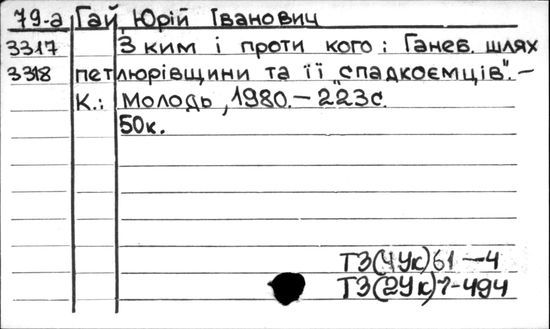 79-а Гай, Юрій Іванович
3317 З ким і проти кого: Ганеб. шлях
3318 петлюрівщини та її „спадкоємців". –
К.: Молодь, 1980. – 223с.
50к.
Т3(4Ук)61 – 4
Т3(2Ук)7-494